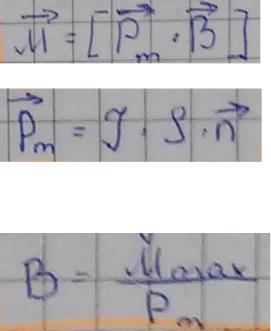 M⃗ = [P⃗m · B⃗]
P⃗m = J · S · n⃗
B = Mmax / Pm